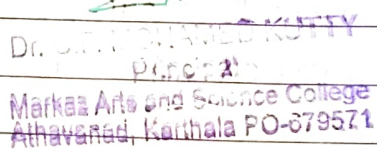 Dr. MOHAMED KUTTY
Principal
Markaz Arts and Science College
Athavanad, Karthala PO-679571